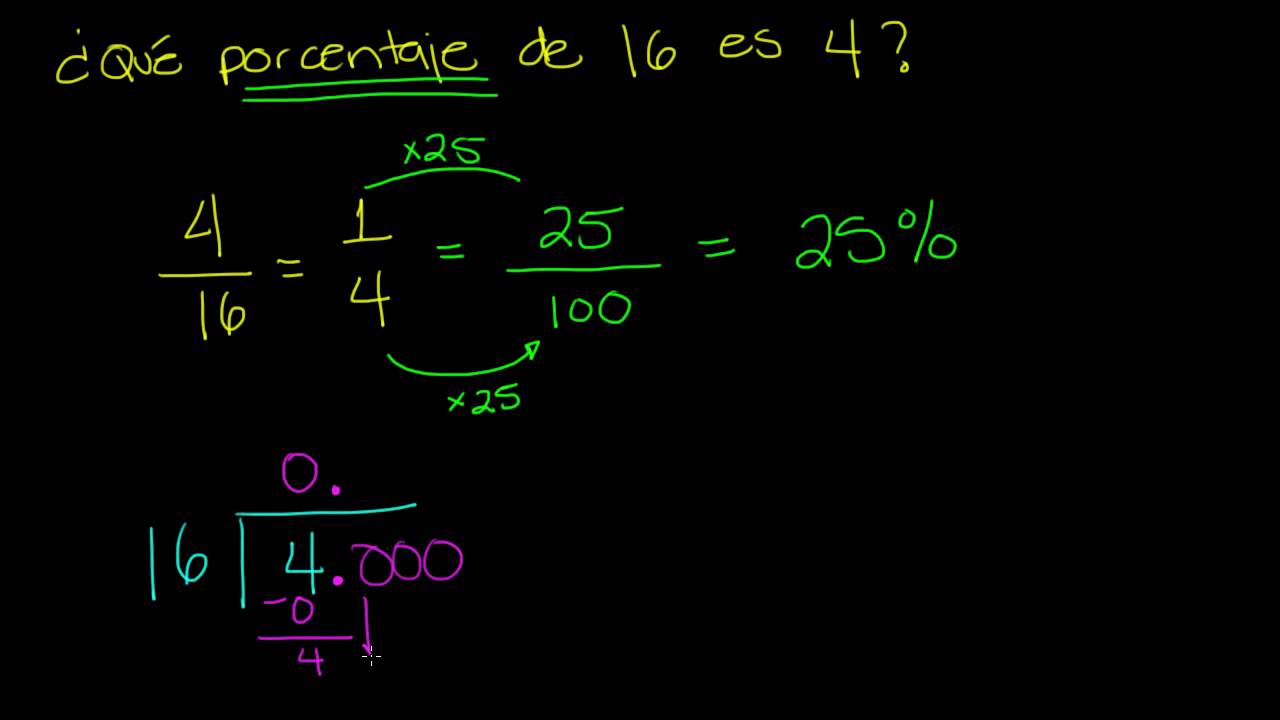 ¿Qué porcentaje de 16 es 4?
×25
4/16 = 1/4 = 25/100 = 25%
×25
0.
16 4.000
-0
4